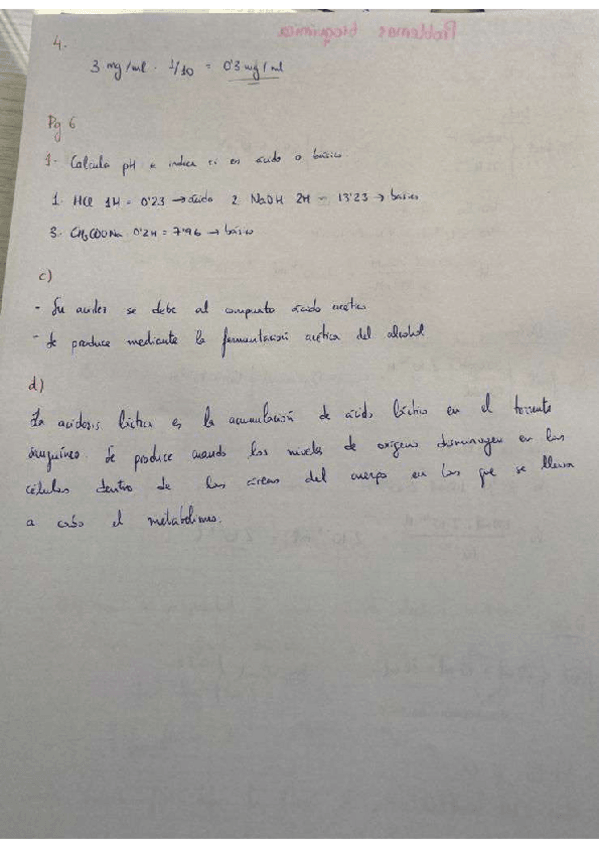 Problemas bioquímica
4.
3 mg/ml · 1/10 = 0'3 mg/ml
Pg 6
1- Calcula pH e indica si es ácido o básico
1. HCl 1M = 0'23 → ácido 2 NaOH 2M - 13'23 → básico
3. CH3COONa 0'2M = 7'96 → básico
c)
- Su acidez se debe al compuesto ácido acético
- Se produce mediante la fermentación acética del alcohol
d)
La acidosis láctica es la acumulación de ácido láctico en el torrente
sanguíneo. Se produce cuando los niveles de oxígeno disminuyen en las
células dentro de las áreas del cuerpo en las que se lleva
a cabo el metabolismo.